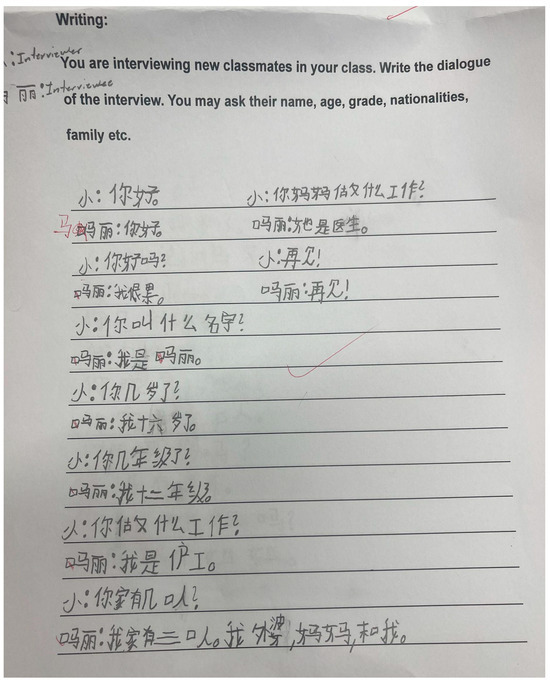 Writing:
小:Interviewer
丽:Interviewee
You are interviewing new classmates in your class. Write the dialogue
of the interview. You may ask their name, age, grade, nationalities,
family etc.
小:你好。
马
吗丽:你好。
小:你好吗?
吗丽:我很累。
小:你叫什么名字?
吗丽:我是吗丽。
小:你几岁了?
吗丽:我十六岁了。
小:你几年级了?
吗丽:我十二年级。
小:你做什么工作?
吗丽:我是护工。
小:你家有几口人?
吗丽:我家有三口人。我外婆,妈妈,和我。
小:你妈妈做什么工作?
吗丽:她是医生。
小:再见!
吗丽:再见!